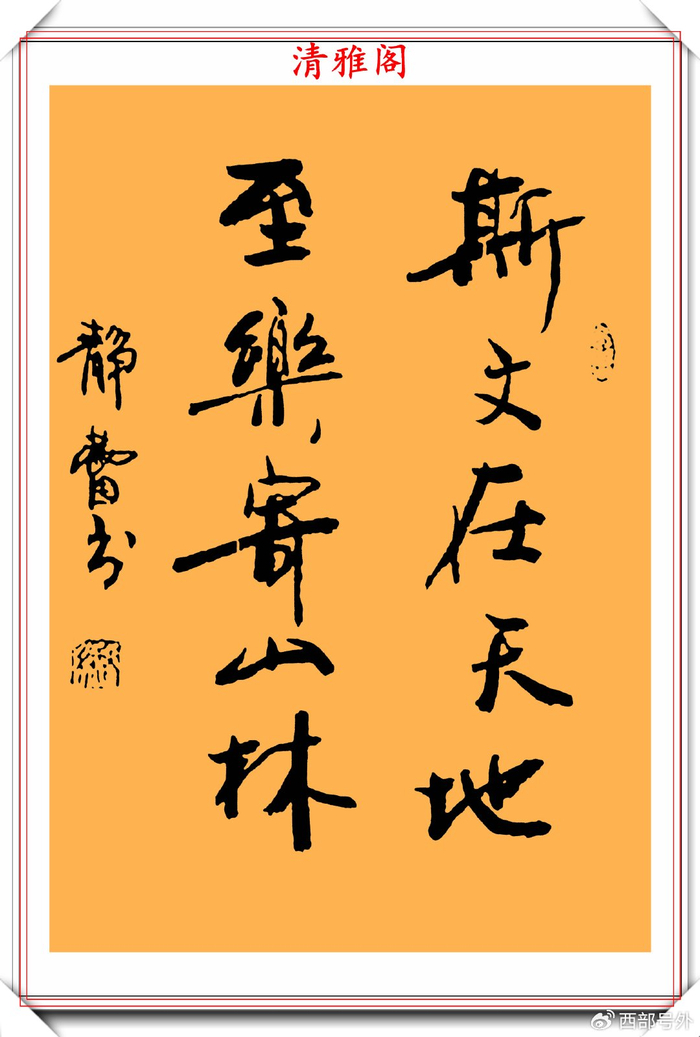 清雅阁
斯文在天地
至樂寄山林
静蕾书
西部号外